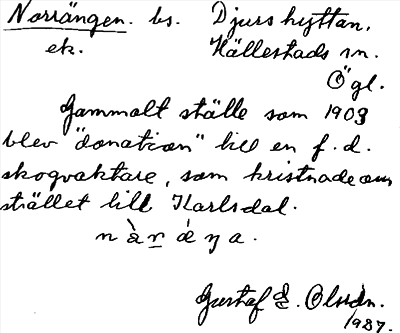 Norrängen. bs. Djurshyttan.
ek. Hällestads sn.
Ögl.
Gammalt ställe som 1903
blev "donation" till en f. d.
skogvaktare, som kristnade om
stället till Karlsdal.
Gustaf E.
1937.